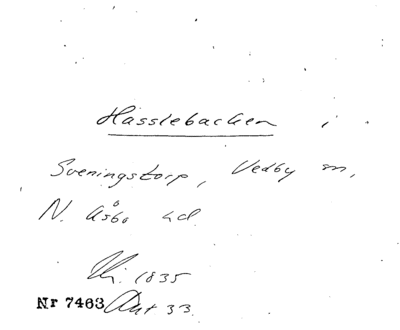 Hasslebacken i
Sveningstorp, Vedby sn,
N. Åsbo hd.
1835
Nr 7463 Ant 33.